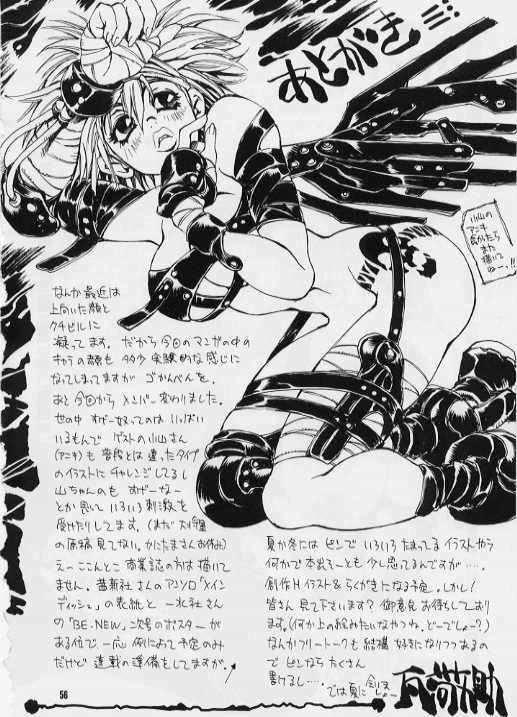 あとがき
小山の
アニキ
良かったら
また
描いて
ねー!!
なんか最近は
上向いた顔と
クチビルに
凝ってます。だから今回のマンガの中の
キャラの顔も多少実験的な感じに
なってしまってますがごかんべんを。
あと今回からメンバー変わりました。
世の中すげー奴ってのはいっぱい
いるもんでゲストの小山さん
(アニキ)も普段とは違ったタイプ
のイラストにチャレンジしてるし
山ちゃんのもすげーなー
とか思っていろいろ刺激を
受けたりしてます。(まだ
の原稿見てない。かにたまさんお休み)
えーここんとこ商業誌の方は描いて
ません。茜新社さんのアンソロ「メイン
ディッシュ」の表紙と一水社さんの
「BE-NEW」二次号のポスターが
ある位で一応例によって予定のみ
だけど連載の準備をしてますが。
夏か冬にはピンでいろいろたまってるイラストやら
何かで本出そーとも少し思ってるんですが‥‥
創作Hイラスト&らくがきになる予定。しかし!
皆さん見て下さいます?御意見お待ちしており
ます。(何か上の絵みたいなやつね。どーでしょー?)
なんかフリートークも結構好きになりつつあるの
でピンならたくさん
書けるし‥‥
では夏に会いましょー
56